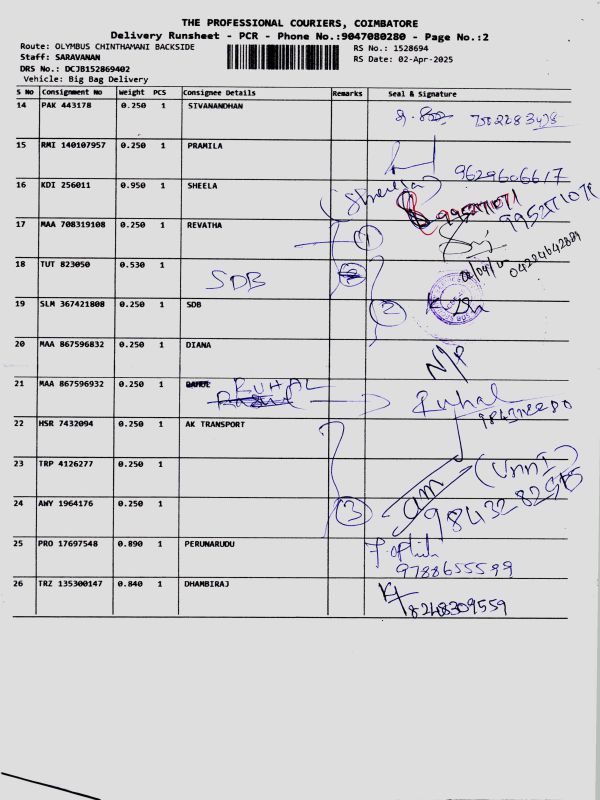 THE PROFESSIONAL COURIERS, COIMBATORE
Delivery Runsheet - PCR - Phone No.:9047080280 - Page No.:2
Route: OLYMBUS CHINTHAMANI BACKSIDE
RS No.: 1528694
Staff: SARAVANAN
RS Date: 02-Apr-2025
DRS No.: DCJB152869402
Vehicle: Big Bag Delivery
S No Consignment No Weight PCS Consignee Details Remarks Seal & Signature
14 PAK 443178 0.250 1 SIVANANDHAN
15 RMI 140107957 0.250 1 PRAMILA
9629606617
16 KDI 256011 0.950 1 SHEELA
(Sheela)
9952771071
17 MAA 708319108 0.250 1 REVATHA
1
18 TUT 823050 0.530 1
SDB
04224642889
19 SLM 367421808 0.250 1 SDB
2
20 MAA 867596832 0.250 1 DIANA
N/P
21 MAA 867596932 0.250 1
RUHAL
Ruhal
22 HSR 7432094 0.250 1 AK TRANSPORT
23 TRP 4126277 0.250 1
(UnnI)
24 AWY 1964176 0.250 1
3
am
25 PRO 17697548 0.890 1 PERUNARUDU
9788655599
26 TRZ 135300147 0.840 1 DHAMBIRAJ
8248309559